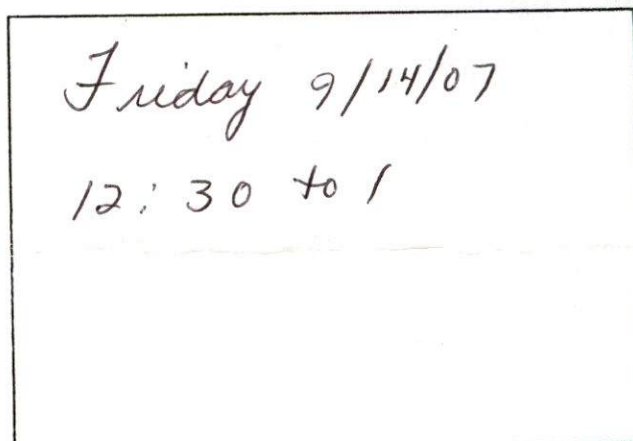 Friday 9/14/07
12:30 to 1